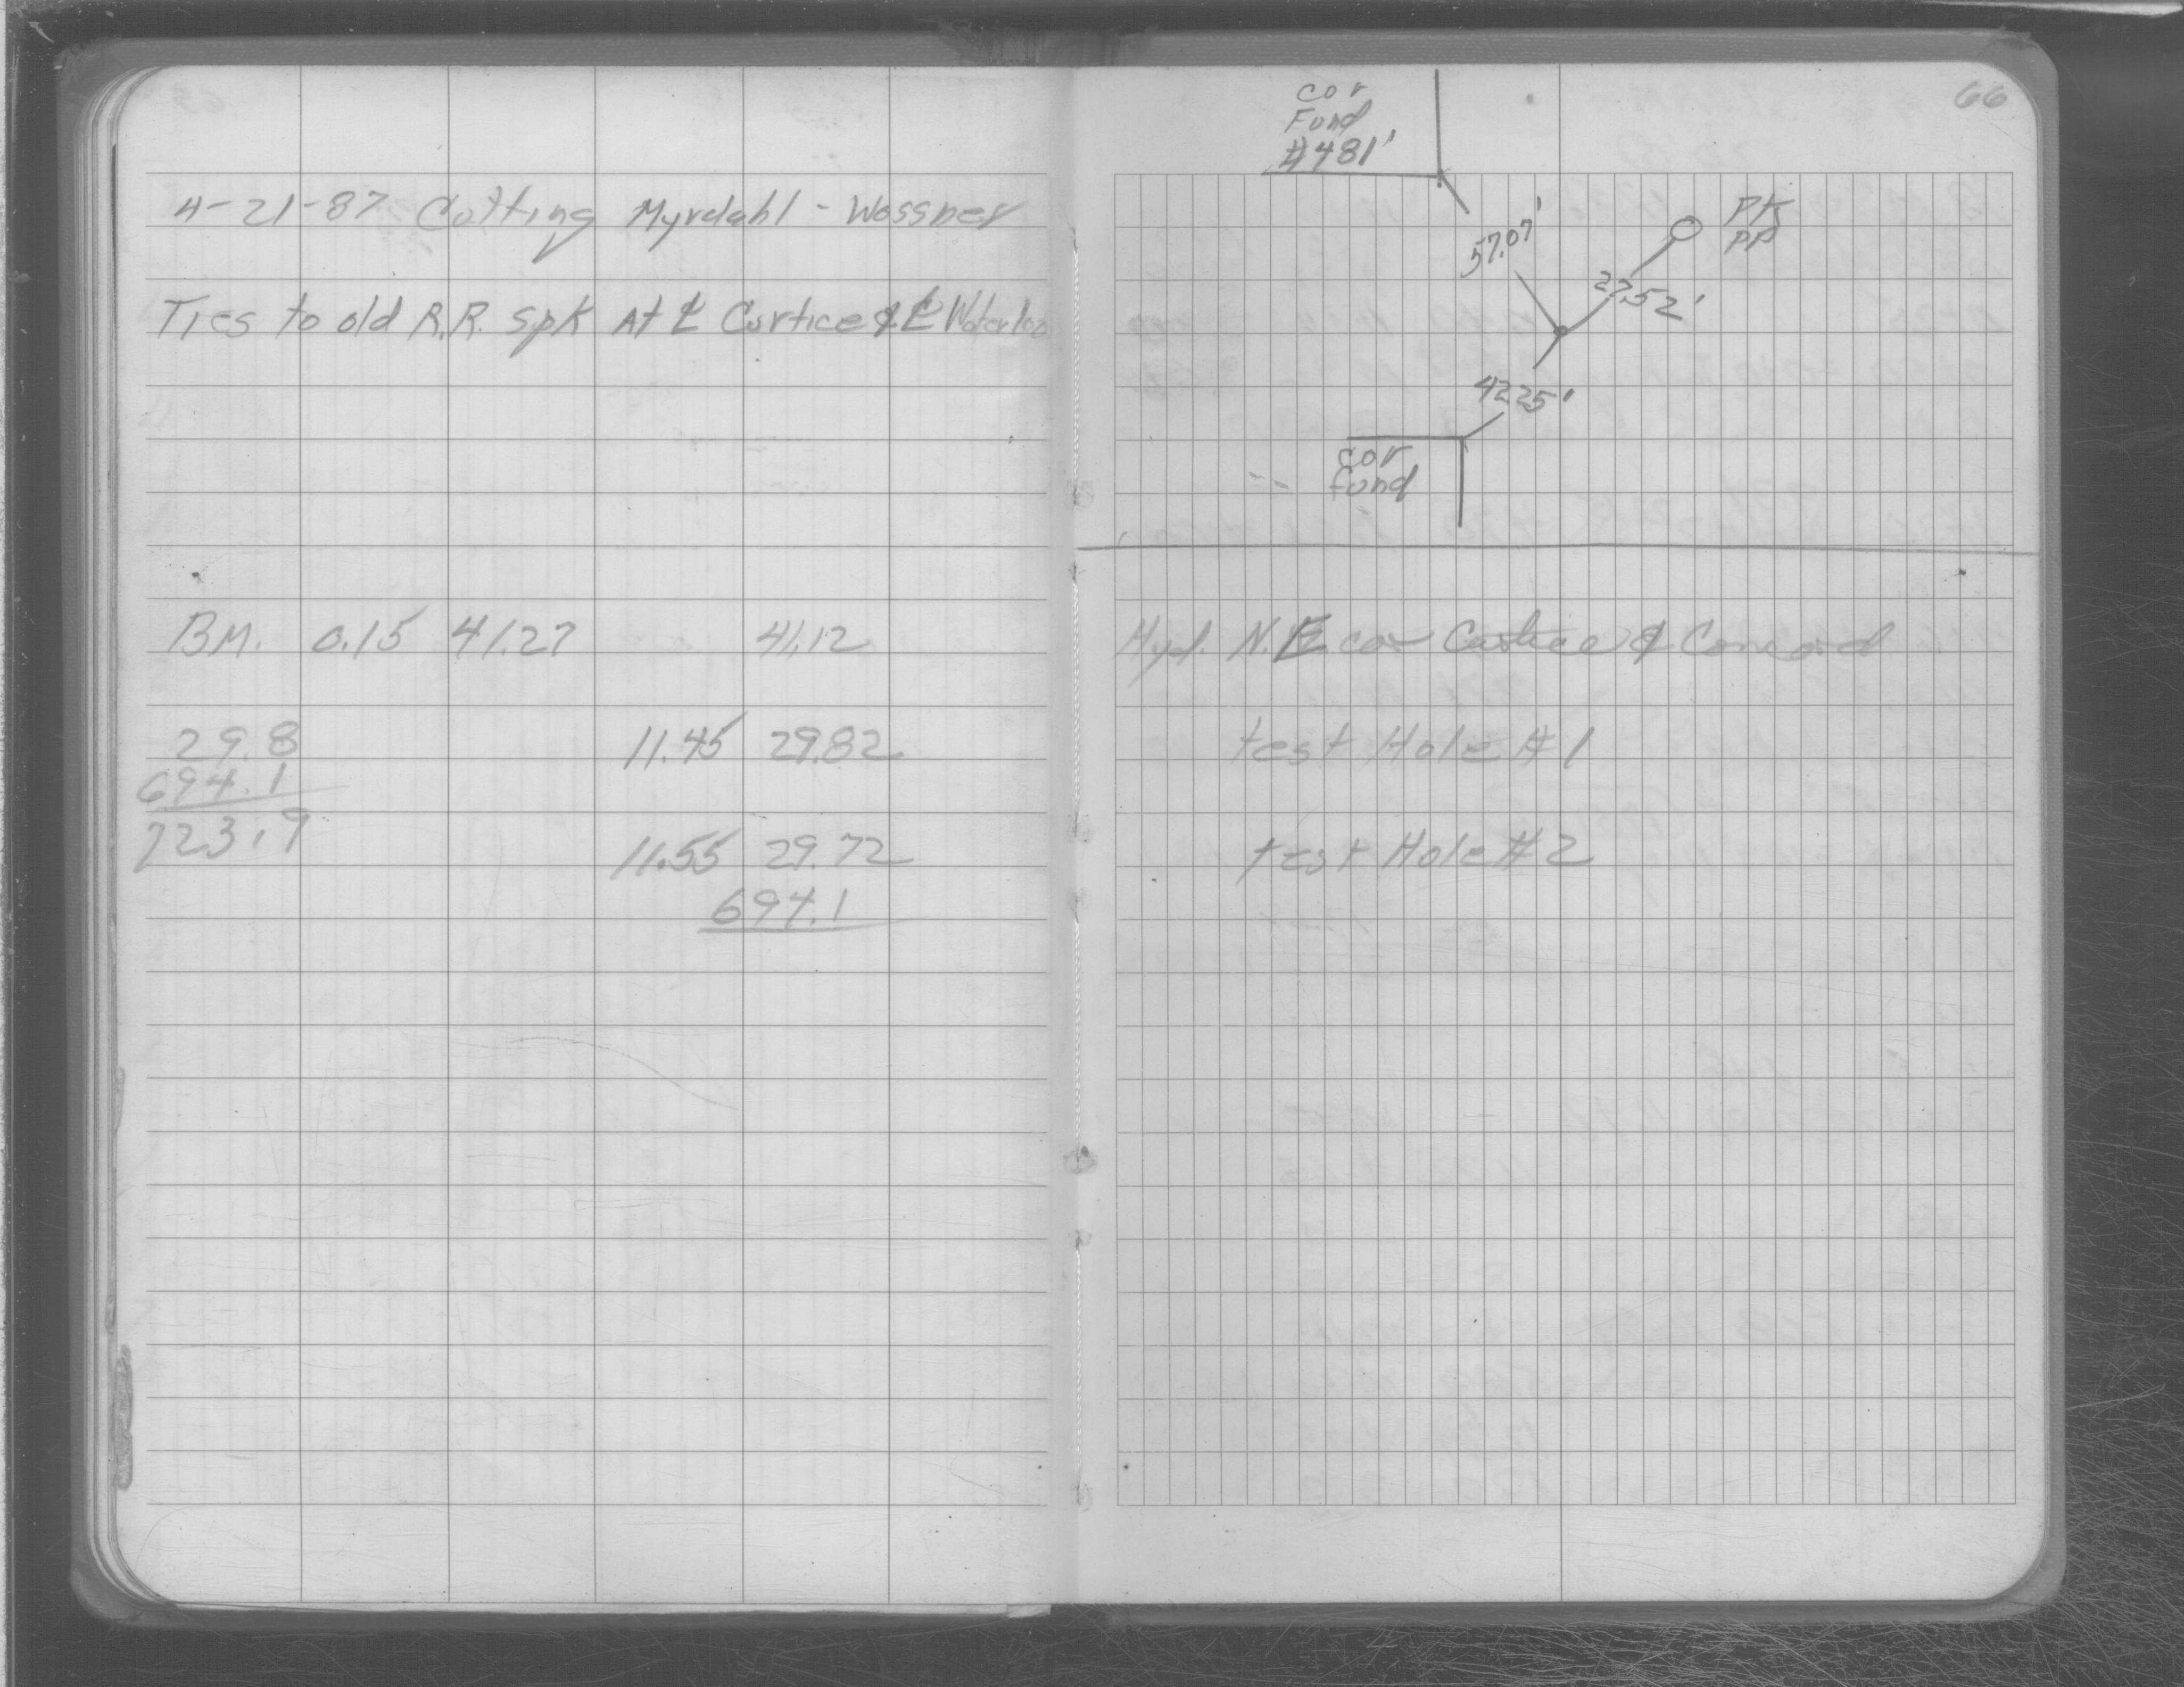 4-21-87 Cutting Myrdahl - Wossner
Ties to old R.R. spk At ℄ Curtice & ℄ Waterloo
BM. 0.15 41.27 41.12
29.8
694.1
723.9
11.45 29.82
11.55 29.72
694.1
66
cor
Fund
#481'
57.07'
PK
PP
27.52'
42.25'
cor
fund
Hyd. N.E. cor Curtice & Concord
test Hole #1
test Hole #2